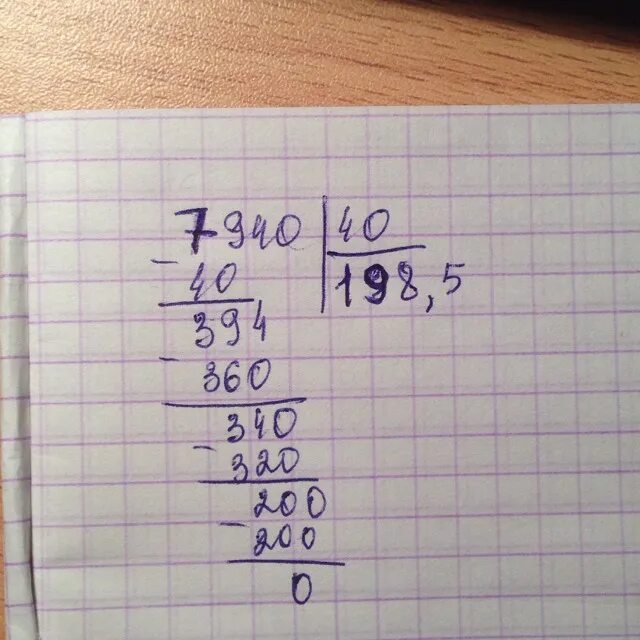 7940 40
- 40 198,5
394
- 360
340
- 320
200
- 200
0